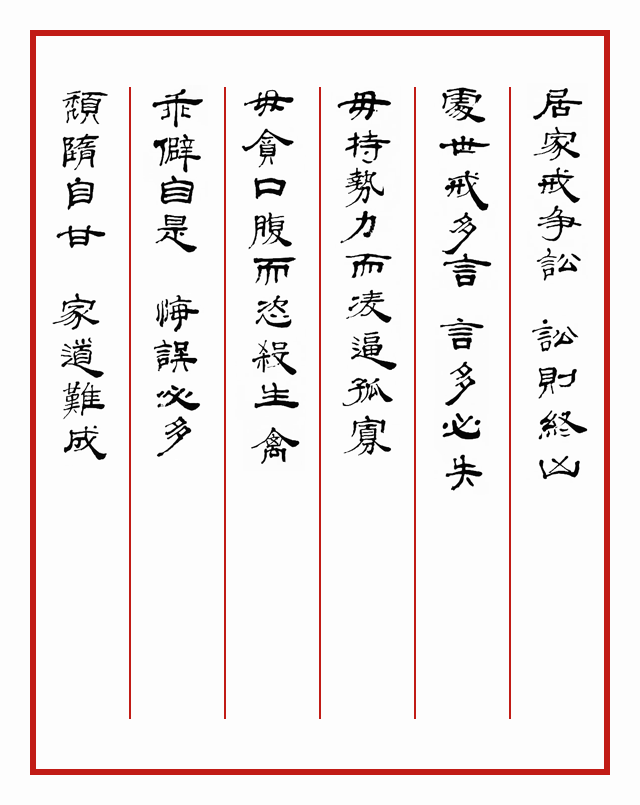 居家戒争訟 訟則終凶
處世戒多言 言多必失
毋持勢力而凌逼孤寡
毋貪口腹而恣殺生禽
乖僻自是 悔誤必多
頹隋自甘 家道難成